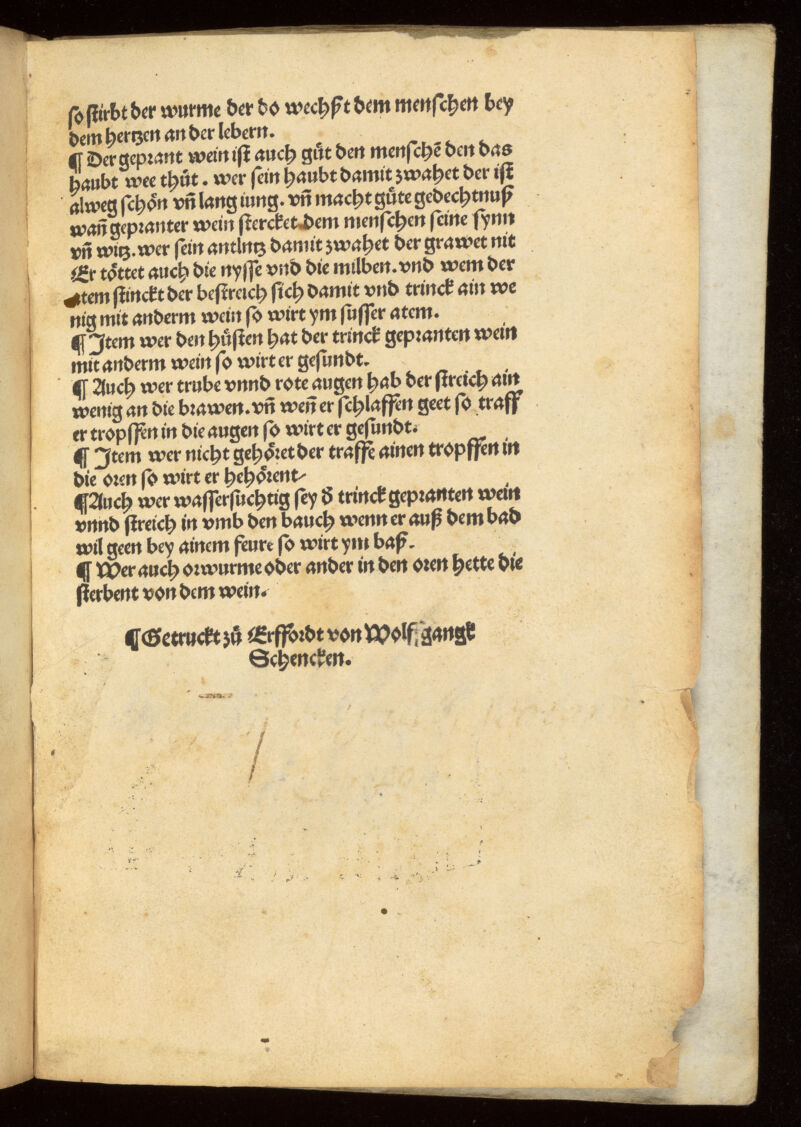 ſo ſtirbt der wurme der do wechßt dem menſchen bey
dem hertzen an der lebern.
¶ Der geprant wein iſt auch gůt den menſchē den das
haubt wee thůt. wer ſein haubt damit zwahet der iſt
alweg ſchön vñ lang iung. vñ macht gůte gedechtnuß
wañ gepranter wein ſtercket dem menſchen ſeine ſynn
vñ witz. wer ſein antlntz damit zwahet der grawet nit
Er töttet auch die nyſſe vnd die milben. vnd wem der
atem ſtinckt der beſtreich ſich damit vnd trinck ain we
nig mit anderm wein ſo wirt ym ſuſſer atem.
¶ Item wer den hůſten hat der trinck gepranten wein
mit anderm wein ſo wirt er geſundt.
¶ Auch wer trube vnnd rote augen hab der ſtreich ain
wenig an die brawen. vñ weñ er ſchlaffen geet ſo traff
er tropffen in die augen ſo wirt er geſundt.
¶ Item wer nicht gehöret der traffe ainen tropffen in
die oren ſo wirt er hehörent
¶ Auch wer waſſerſuchtig ſey ď trinck gepranten wein
vnnd ſtreich in vmb den bauch wenn er auß dem bad
wil geen bey ainem feure ſo wirt ym baß.
¶ Wer auch orwurme oder ander in den oren hette die
ſterbent von dem wein.
¶ Getruckt zů Erffordt von Wolfgangk
Schencken.